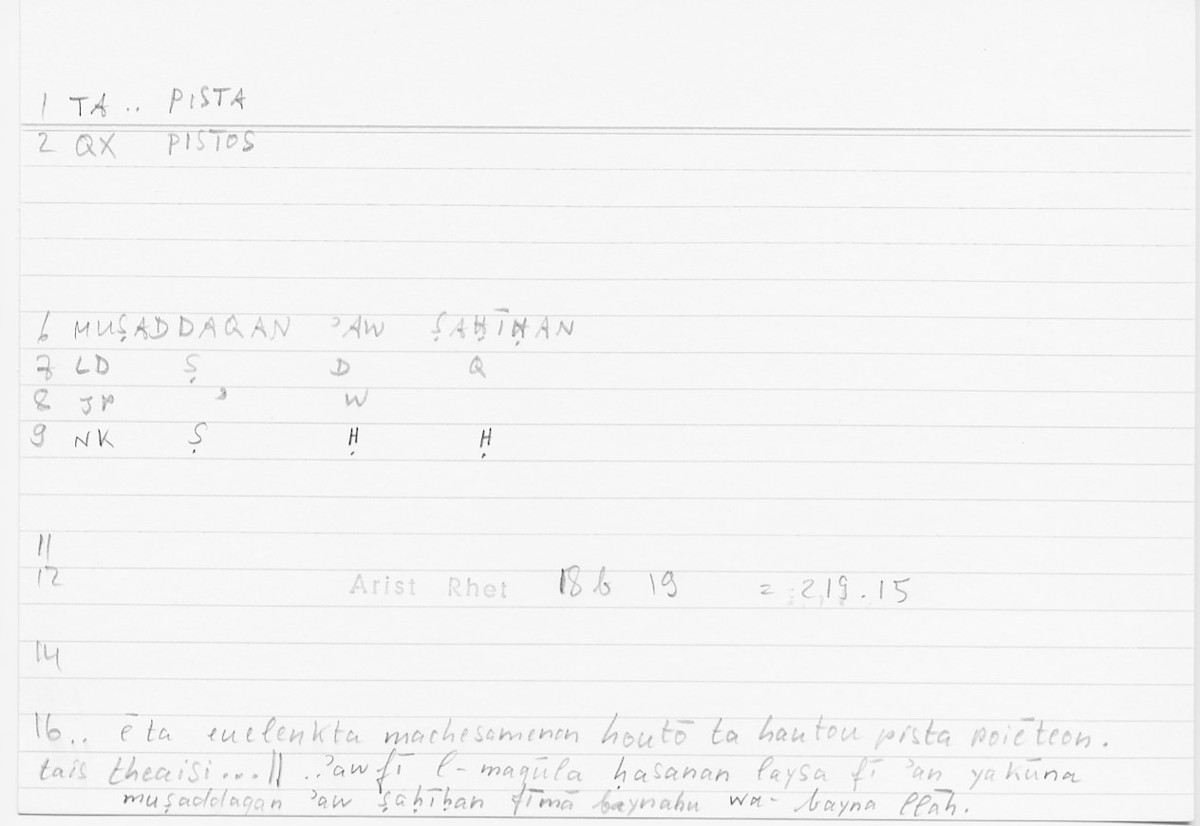 1 TA .. PISTA
2 QX PISTOS
6 MUṢADDAQAN ʾAW ṢAḤĪḤAN
7 LD Ṣ D Q
8 JP ʾ W
9 NK Ṣ Ḥ Ḥ
11
12 Arist Rhet 18b 19 = 219.15
14
16.. ē ta euelenkta machesamenon houtō ta hautou pista poiēteon.
tais theaisi...|| ..ʾaw fī l-maqūla ḥasanan laysa fī ʾan yakūna
muṣaddaqan ʾaw ṣaḥīḥan fīmā baynahu wa- bayna llāh.